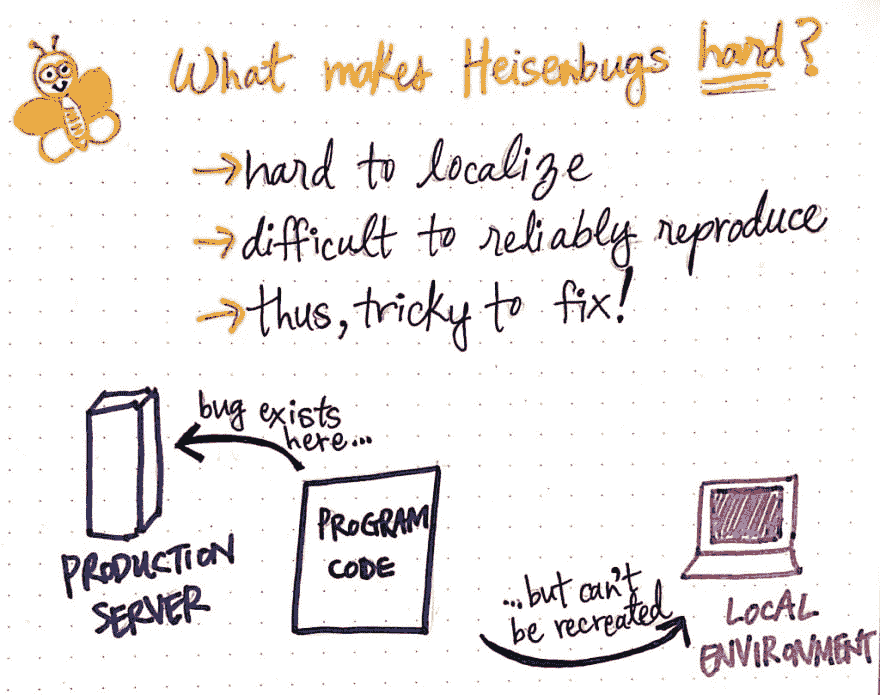 What makes Heisenbugs hard?
→hard to localize
→difficult to reliably reproduce
→thus, tricky to fix!
bug exists
here...
PROGRAM
CODE
PRODUCTION
SERVER
...but can't
be recreated
LOCAL
ENVIRONMENT